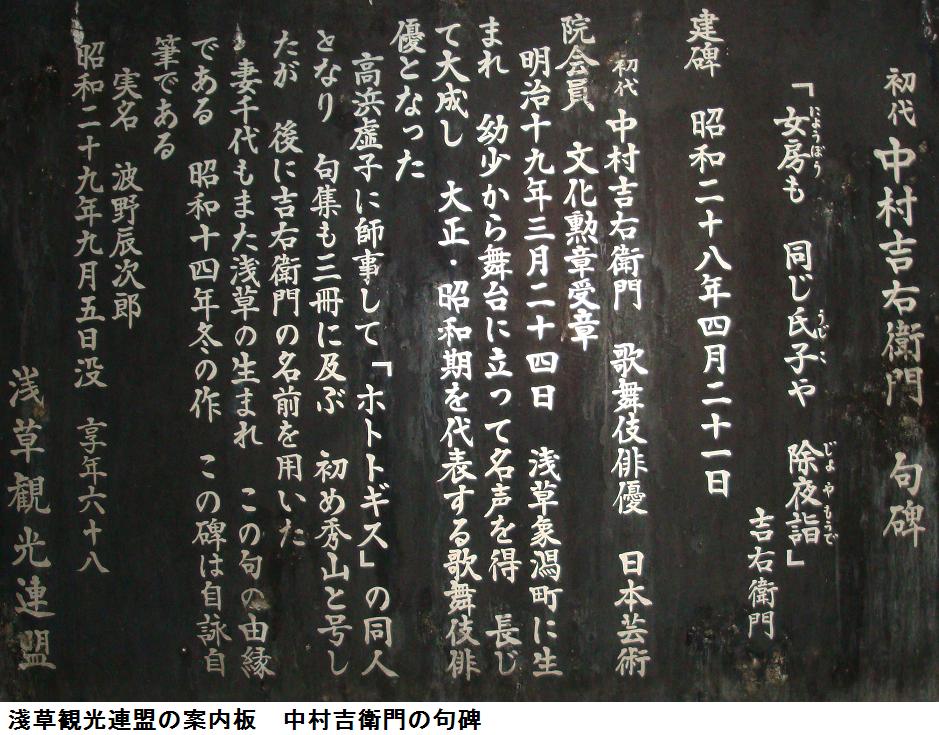 初代 中村吉右衛門 句碑
「女房も 同じ氏子や 除夜詣」
吉右衛門
建碑 昭和二十八年四月二十一日
初代 中村吉右衛門 歌舞伎俳優 日本芸術
院会員 文化勲章受章
明治十九年三月二十四日 浅草象潟町に生
まれ 幼少から舞台に立って名声を得 長じ
て大成し 大正・昭和期を代表する歌舞伎俳
優となった
高浜虚子に師事して「ホトトギス」の同人
となり 句集も三冊に及ぶ 初め秀山と号し
たが 後に吉右衛門の名前を用いた
妻千代もまた浅草の生まれ この句の由縁
である 昭和十四年冬の作 この碑は自詠自
筆である
実名 波野辰次郎
昭和二十九年九月五日没 享年六十八
浅草観光連盟
淺草観光連盟の案内板 中村吉衛門の句碑